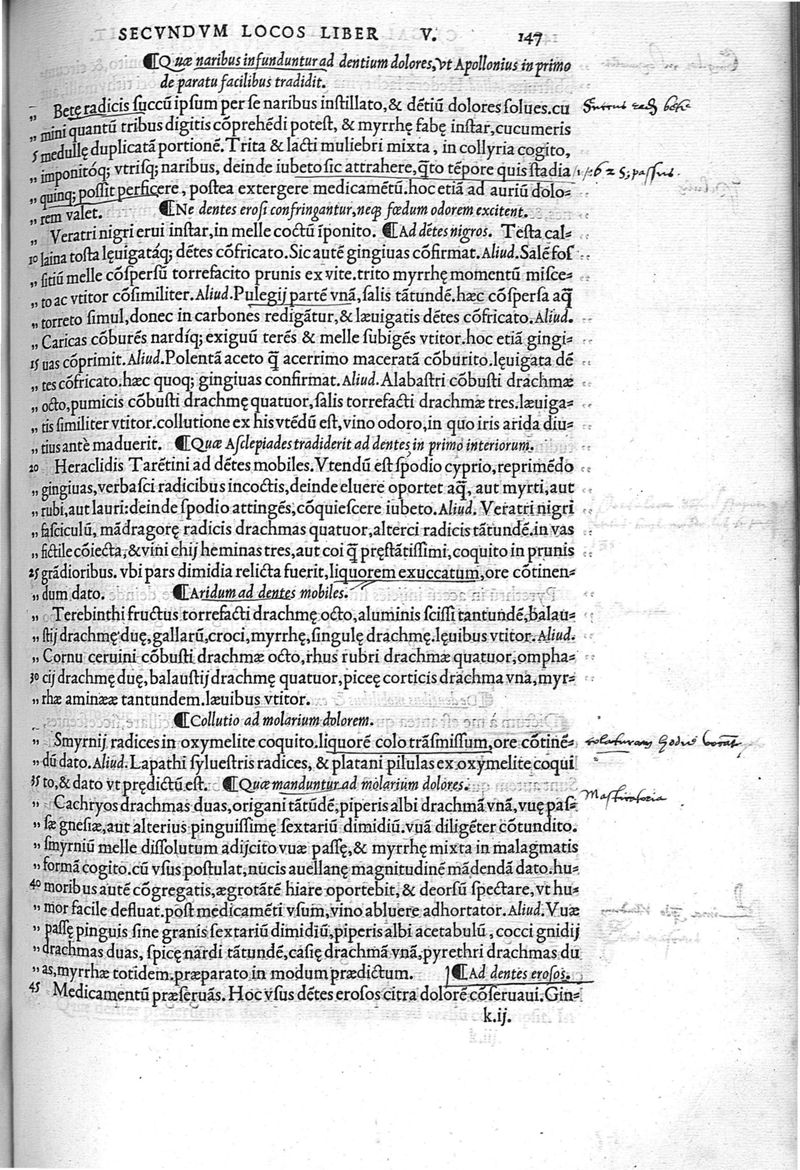 SECVNDVM LOCOS LIBER V. 147
¶Quæ naribus infunduntur ad dentium dolores, vt Apollonius in primo
de paratu facilibus tradidit.
„ Betę radicis succū ipsum per se naribus instillato, & dētiū dolores solues. cu
„ mini quantū tribus digitis cōprehēdi potest, & myrrhę fabę instar, cucumeris
5 medullę duplicatā portionē. Trita & lacti muliebri mixta, in collyria cogito,
„ imponitóq; vtrisq; naribus, deinde iubeto sic attrahere, q̄to tēpore quis stadia
„ quinq; possit perficere, postea extergere medicamētū. hoc etiā ad auriū dolo-
„ rem valet. ¶Ne dentes erosi confringantur, neq; fœdum odorem excitent.
„ Veratri nigri erui instar, in melle coctū īponito. ¶Ad dētes nigros. Testa cal-
10 laina tosta lęuigatáq; dētes cōfricato. Sic autē gingiuas cōfirmat. Aliud. Salē fos
„ sitiū melle cōspersū torrefacito prunis ex vite. trito myrrhę momentū misce-
„ to ac vtitor cōsimiliter. Aliud. Pulegij partē vnā, salis tātundē. hæc cōspersa aq̄
„ torreto simul, donec in carbones redigātur, & læuigatis dētes cōfricato. Aliud.
„ Caricas cōburēs nardíq; exiguū terēs & melle subigēs vtitor. hoc etiā gingi-
15 uas cōprimit. Aliud. Polentā aceto q̄ acerrimo maceratā cōburito. lęuigata dē
„ tes cōfricato. hæc quoq; gingiuas confirmat. Aliud. Alabastri cōbusti drachmæ
„ octo, pumicis cōbusti drachmę quatuor, salis torrefacti drachmæ tres. læuiga-
„ tis similiter vtitor. collutione ex his vtēdū est, vino odoro, in quo iris arida diu-
„ tius antè maduerit. ¶Quæ Asclepiades tradiderit ad dentes in primo interiorum.
20 Heraclidis Tarētini ad dētes mobiles. Vtendū est spodio cyprio, reprimēdo
„ gingiuas, verbasci radicibus incoctis, deinde eluere oportet aq̄, aut myrti, aut
„ rubi, aut lauri: deinde spodio attingēs, cōquiescere iubeto. Aliud. Veratri nigri
„ fasciculū, mādragorę radicis drachmas quatuor, alterci radicis tātundē. in vas
„ fictile cōiecta, & vini chij heminas tres, aut coi q̄ pręstātissimi, coquito in prunis
25 grādioribus. vbi pars dimidia relicta fuerit, liquorem exuccatum, ore cōtinen-
„ dum dato. ¶Aridum ad dentes mobiles.
„ Terebinthi fructus torrefacti drachmę octo, aluminis scissi tantundē, balau-
„ stij drachmę duę, gallarū, croci, myrrhę, singulę drachmę. lęuibus vtitor. Aliud.
„ Cornu ceruini cōbusti drachmæ octo, rhus rubri drachmæ quatuor, ompha-
30 cij drachmę duę, balaustij drachmę quatuor, piceę corticis drachma vna, myr-
„ rhæ aminææ tantundem. læuibus vtitor.
¶Collutio ad molarium dolorem.
„ Smyrnij radices in oxymelite coquito. liquorē colo trāsmissum, ore cōtinē-
„ dū dato. Aliud. Lapathi syluestris radices, & platani pilulas ex oxymelite coqui
35 to, & dato vt prędictū est. ¶Quæ manduntur ad molarium dolores.
„ Cachryos drachmas duas, origani tātūdē, piperis albi drachmā vnā, vuę pas-
„ sæ gnesiæ, aut alterius pinguissimę sextariū dimidiū. vnā diligēter cōtundito.
„ smyrniū melle dissolutum adijcito vuæ passę, & myrrhę mixta in malagmatis
„ formā cogito. cū vsus postulat, nucis auellanę magnitudinē mādendā dato. hu-
40 moribus autē cōgregatis, ægrotātē hiare oportebit, & deorsū spectare, vt hu-
„ mor facile defluat. post medicamēti vsum, vino abluere adhortator. Aliud. Vuæ
„ passę pinguis sine granis sextariū dimidiū, piperis albi acetabulū, cocci gnidij
„ drachmas duas, spicę nardi tātūdē, casię drachmā vnā, pyrethri drachmas du
„ as, myrrhæ totidem. præparato in modum prædictum. ¶Ad dentes erosos.
45 Medicamentū præseruās. Hoc vsus dētes erosos citra dolorē cōseruaui. Gin-
k.ij.
625; passus.
Masticatoria